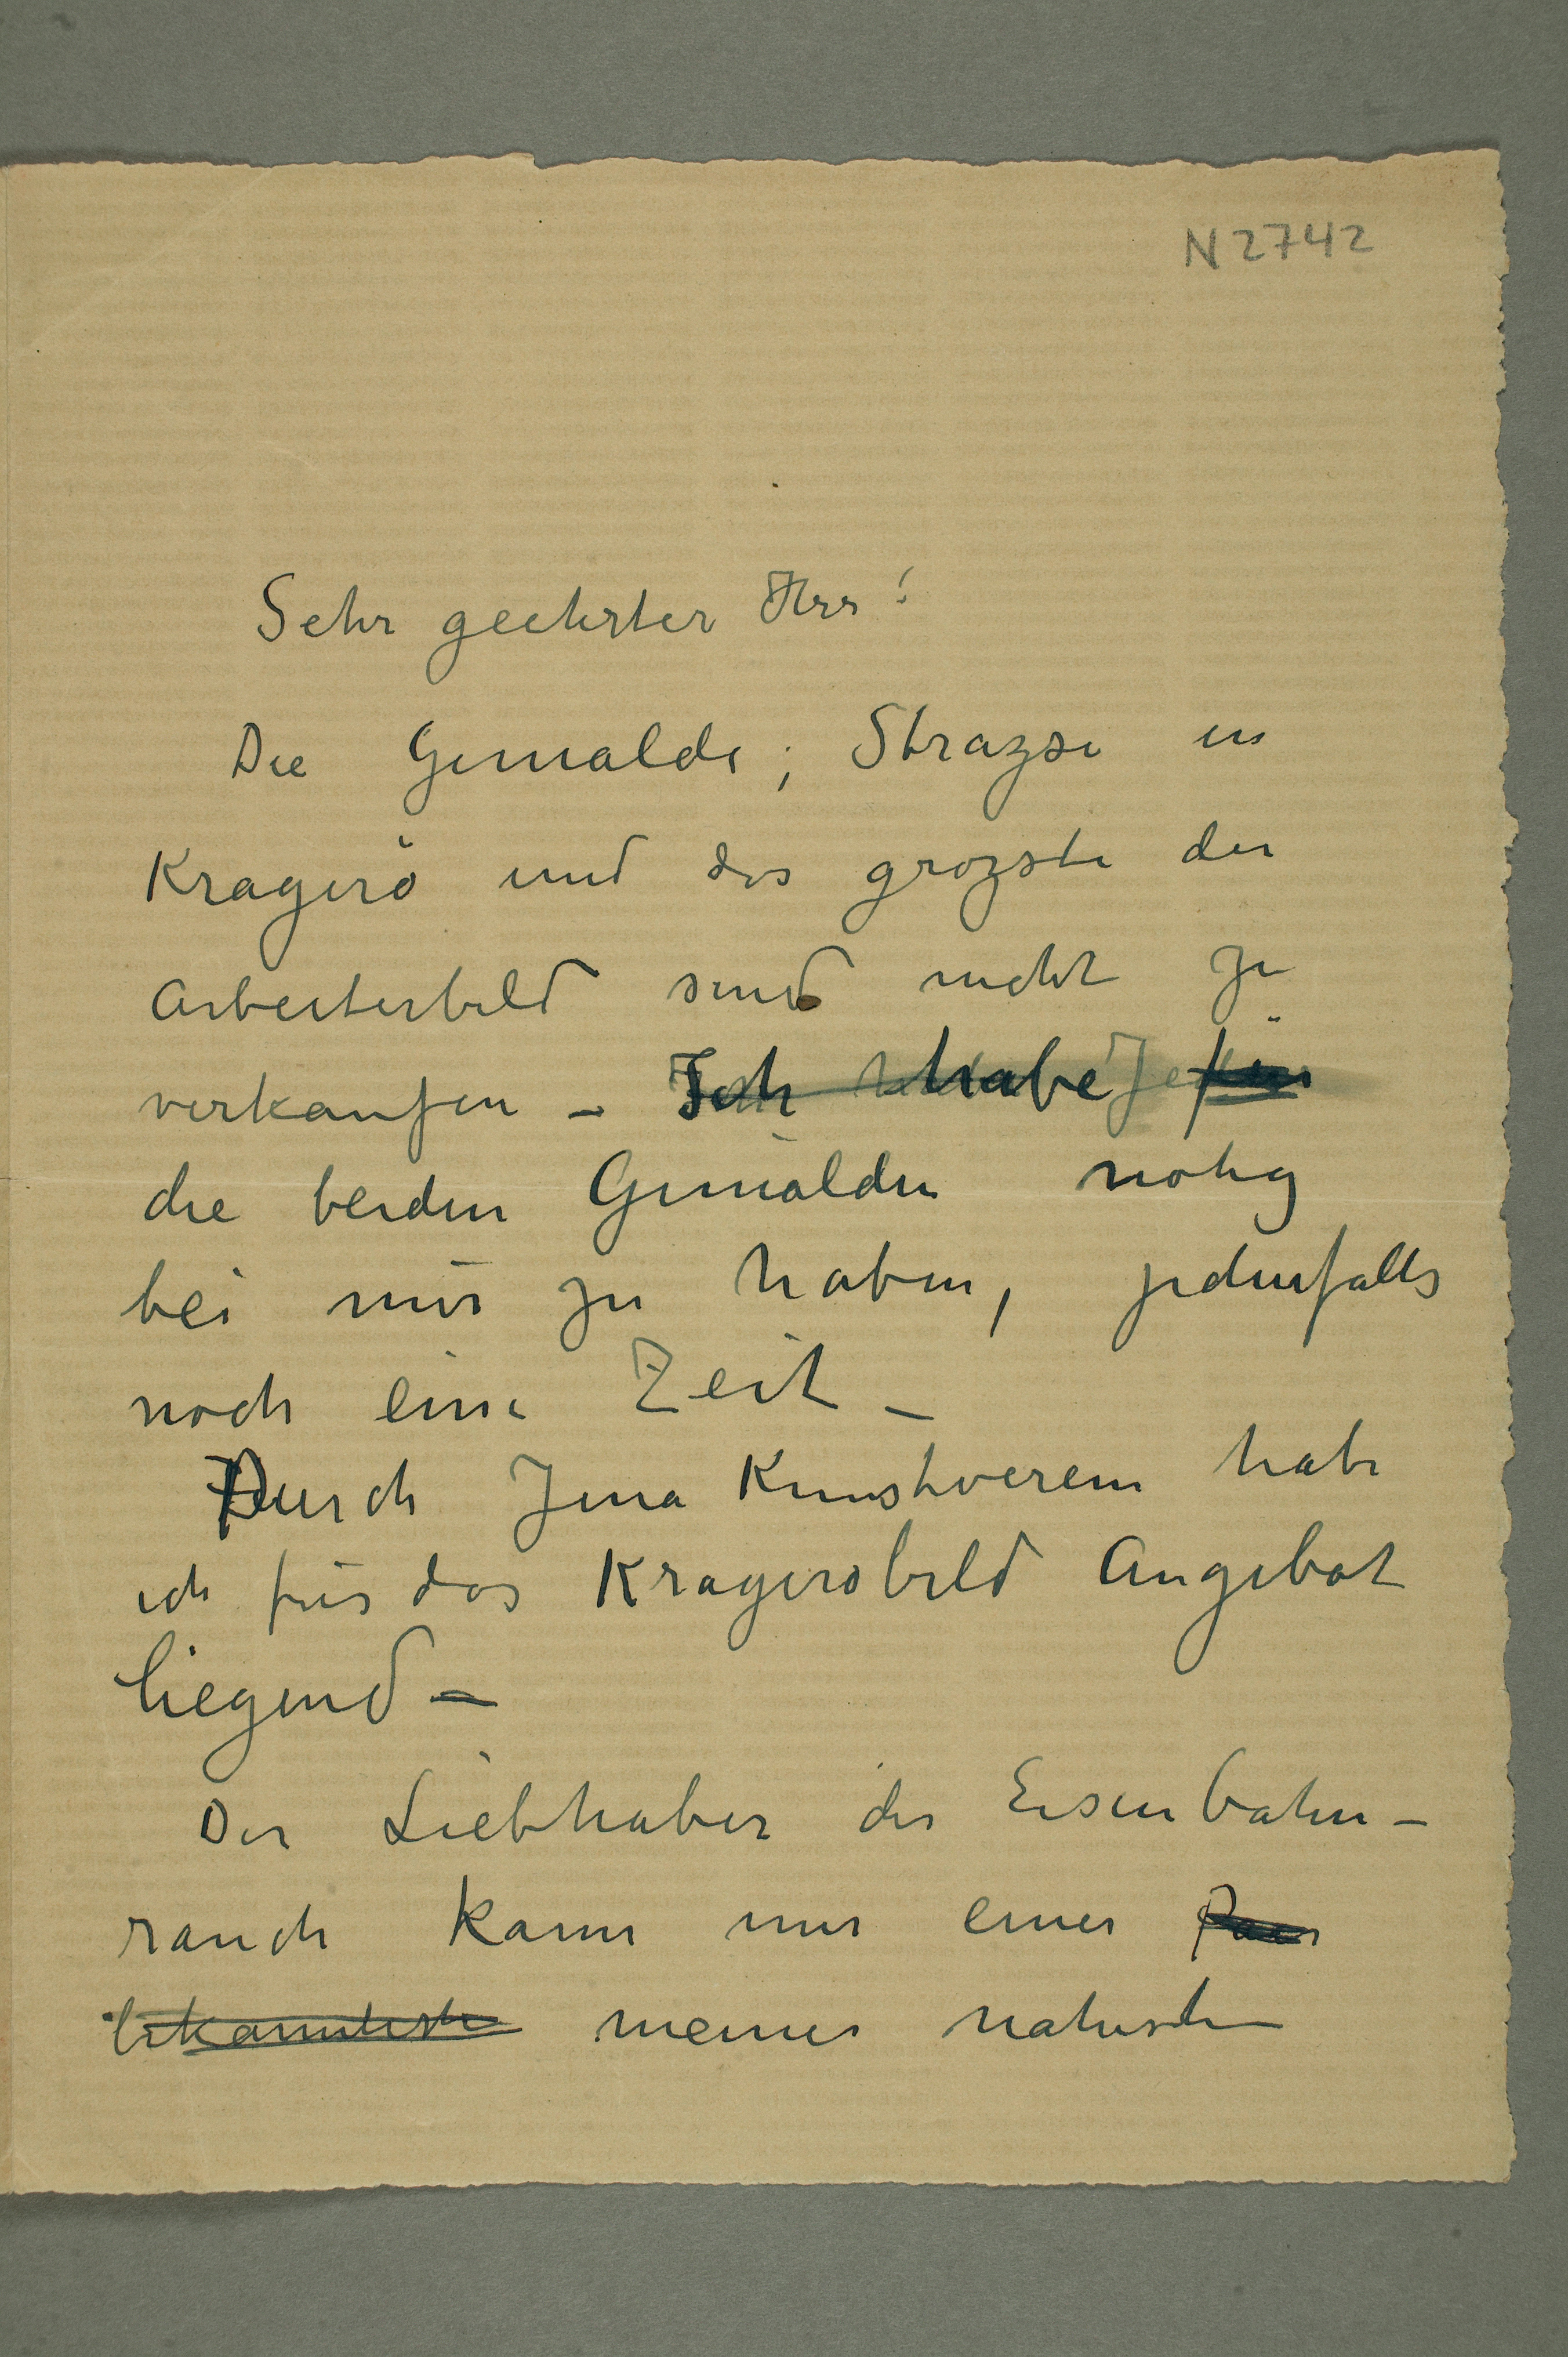 N 2742
Sehr geehrter Herr!
Die Gemälde; Strazse in
Kragerö und das grozste der
Arbeiterbild sind nicht zu
verkaufen – Ich habe für
die beiden Gemälden notig
bei mir zu haben, jedenfalls
noch eine Zeit –
Durch Jena Kunstverein habe
ich für das Kragerobild Angebot
liegend –
Der Liebhaber der Eisenbahn-
rauch kann nur einer
bekannteste meiner nahesten